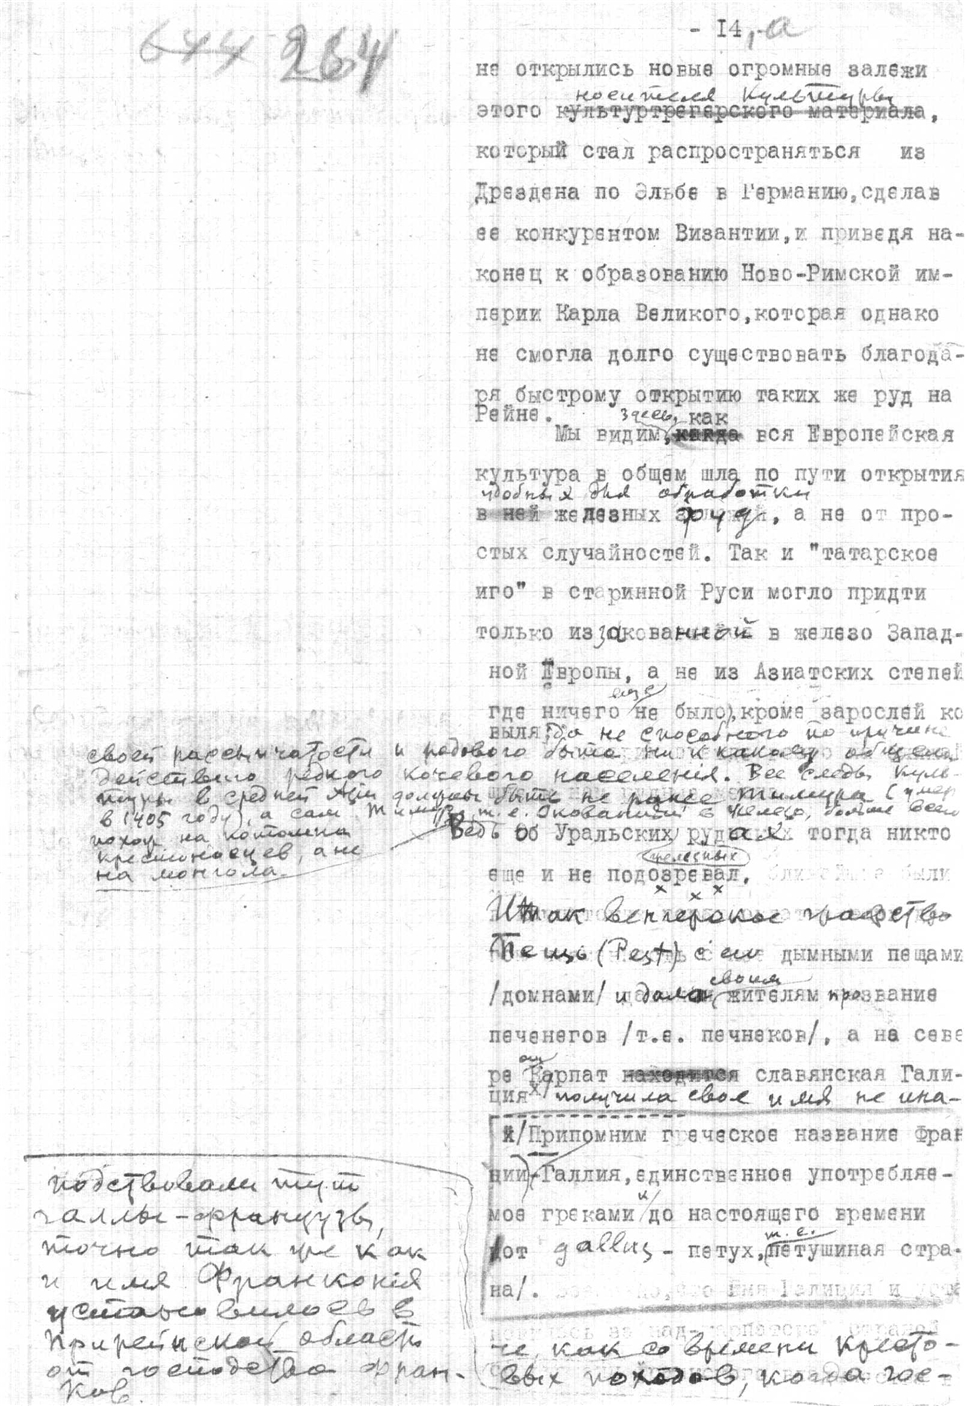 644 264
- 14, а
не открылись новые огромные залежи
носителя культуры
этого культуртрегерского материала,
который стал распространяться из
Дрездена по Эльбе в Германию, сделав
ее конкурентом Византии, и приведя на-
конец к образованию Ново-Римской им-
перии Карла Великого, которая однако
не смогла долго существовать благода-
ря быстрому открытию таких же руд на
Рейне.
здесь, как
Мы видим, вся Европейская
культура в общем шла по пути открытия
удобных для обработки
в ней железных руд, а не от про-
стых случайностей. Так и "татарское
иго" в старинной Руси могло придти
только из закованной в железо Запад-
ной Европы, а не из Азиатских степей
еще
где ничего не было, кроме зарослей ко
выля да не способного по причине
своей рассыпчатости и родового быта ни к какому общему
действию редкого кочевого населения. Все следы куль-
туры в средней Азии должны быть не ранее Тимура (умер
в 1405 году), а сам Тимур, т.е. Окованный в железо, более всего
похож на потомка
крестоносцев, а не
на монгола.
Ведь об Уральских рудах тогда никто
железных
еще и не подозревал.
Итак венгерское графство
Пещь (Pest) с ея дымными пещами
своим
/домнами/ и дала жителям прозвание
печенегов /т.е. печнеков/, а на севе
от
ре Карпат находится славянская Гали-
ция х/ получила свое имя не ина-
х/ Припомним греческое название Фран
ции - Галлия, единственное употребляе-
мое греками и до настоящего времени
т. е.
от gallus - петух, петушиная стра-
на/.
че, как со времени кресто-
вых походов, когда гос-
подствовали тут
галлы-французы,
точно так же как
и имя Франкония
установилось в
Прирейнской область
от господства фран-
ков.